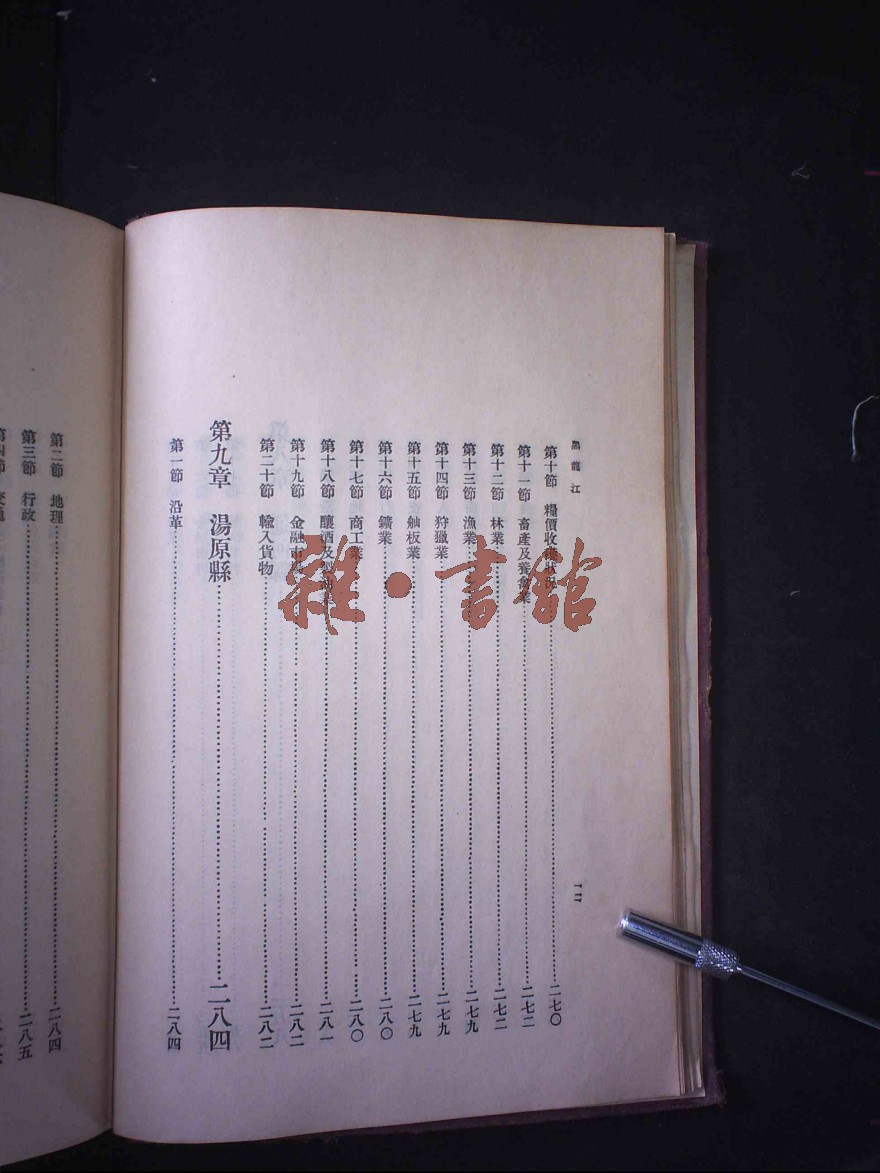 黑龍江
一二
第十節 糧價收穫狀況……二七〇
第十一節 畜產及養禽業……二七二
第十二節 林業……二七二
第十三節 漁業……二七九
第十四節 狩獵業……二七九
第十五節 舢板業……二七九
第十六節 鑛業……二八〇
第十七節 商工業……二八〇
第十八節 釀酒及製油業……二八一
第十九節 金融市……二八二
第二十節 輸入貨物……二八二
第九章 湯原縣……二八四
第一節 沿革……二八四
第二節 地理……二八四
第三節 行政……二八五
雜·書館